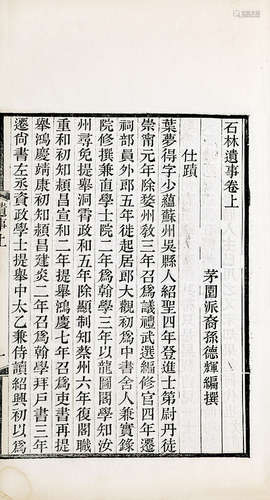 石林遺事卷上
茅園派裔孫德輝編撰
仕蹟
葉夢得字少蘊蘇州吳縣人紹聖四年登進士第尉丹徒
崇甯元年除婺州敎三年召爲議禮武選編修官四年遷
祠部員外郎五年徙起居郎大觀初爲中書舍人兼實錄
院修撰兼直學士院二年爲翰學三年以龍圖閣學知汝
州尋免提舉洞霄政和五年除顯制知蔡州六年復閣職
重和初知潁昌宣和二年提舉鴻慶七年召爲吏書再提
舉鴻慶靖康初知潁昌建炎二年召爲翰學拜戶書三年
遷尙書左丞資政學士提舉中太乙兼侍讀紹興初以爲
遺事上